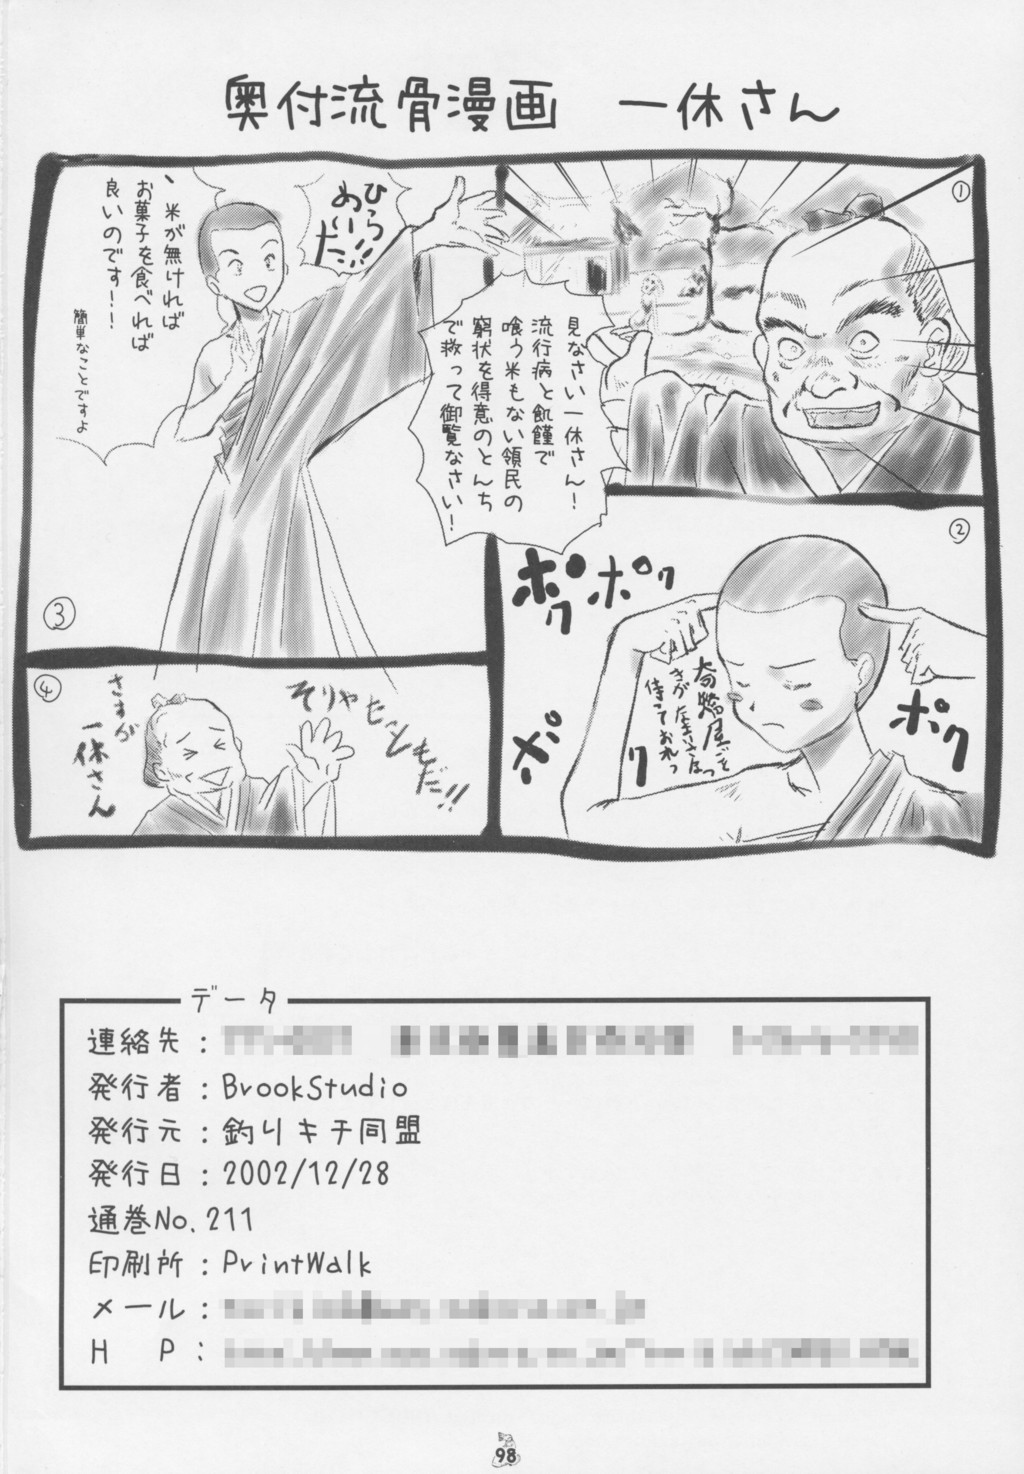 奥付流骨漫画　一休さん
①
見なさい一休さん！
流行病と飢饉で
喰う米もない領民の
窮状を得意のとんち
で救って御覧なさい！
②
ポクポク
ポク
ポク
待っておれっ
③
ひっら
めいた!!
、米が無ければ
お菓子を食べれば
良いのです！！
簡単なことですよ
④
そりゃヒンもだ!!
さすが
一休さん
データ
連絡先：
発行者：BrookStudio
発行元：釣りキチ同盟
発行日：2002/12/28
通巻No.211
印刷所：PrintWalk
メール：
H　P：
98